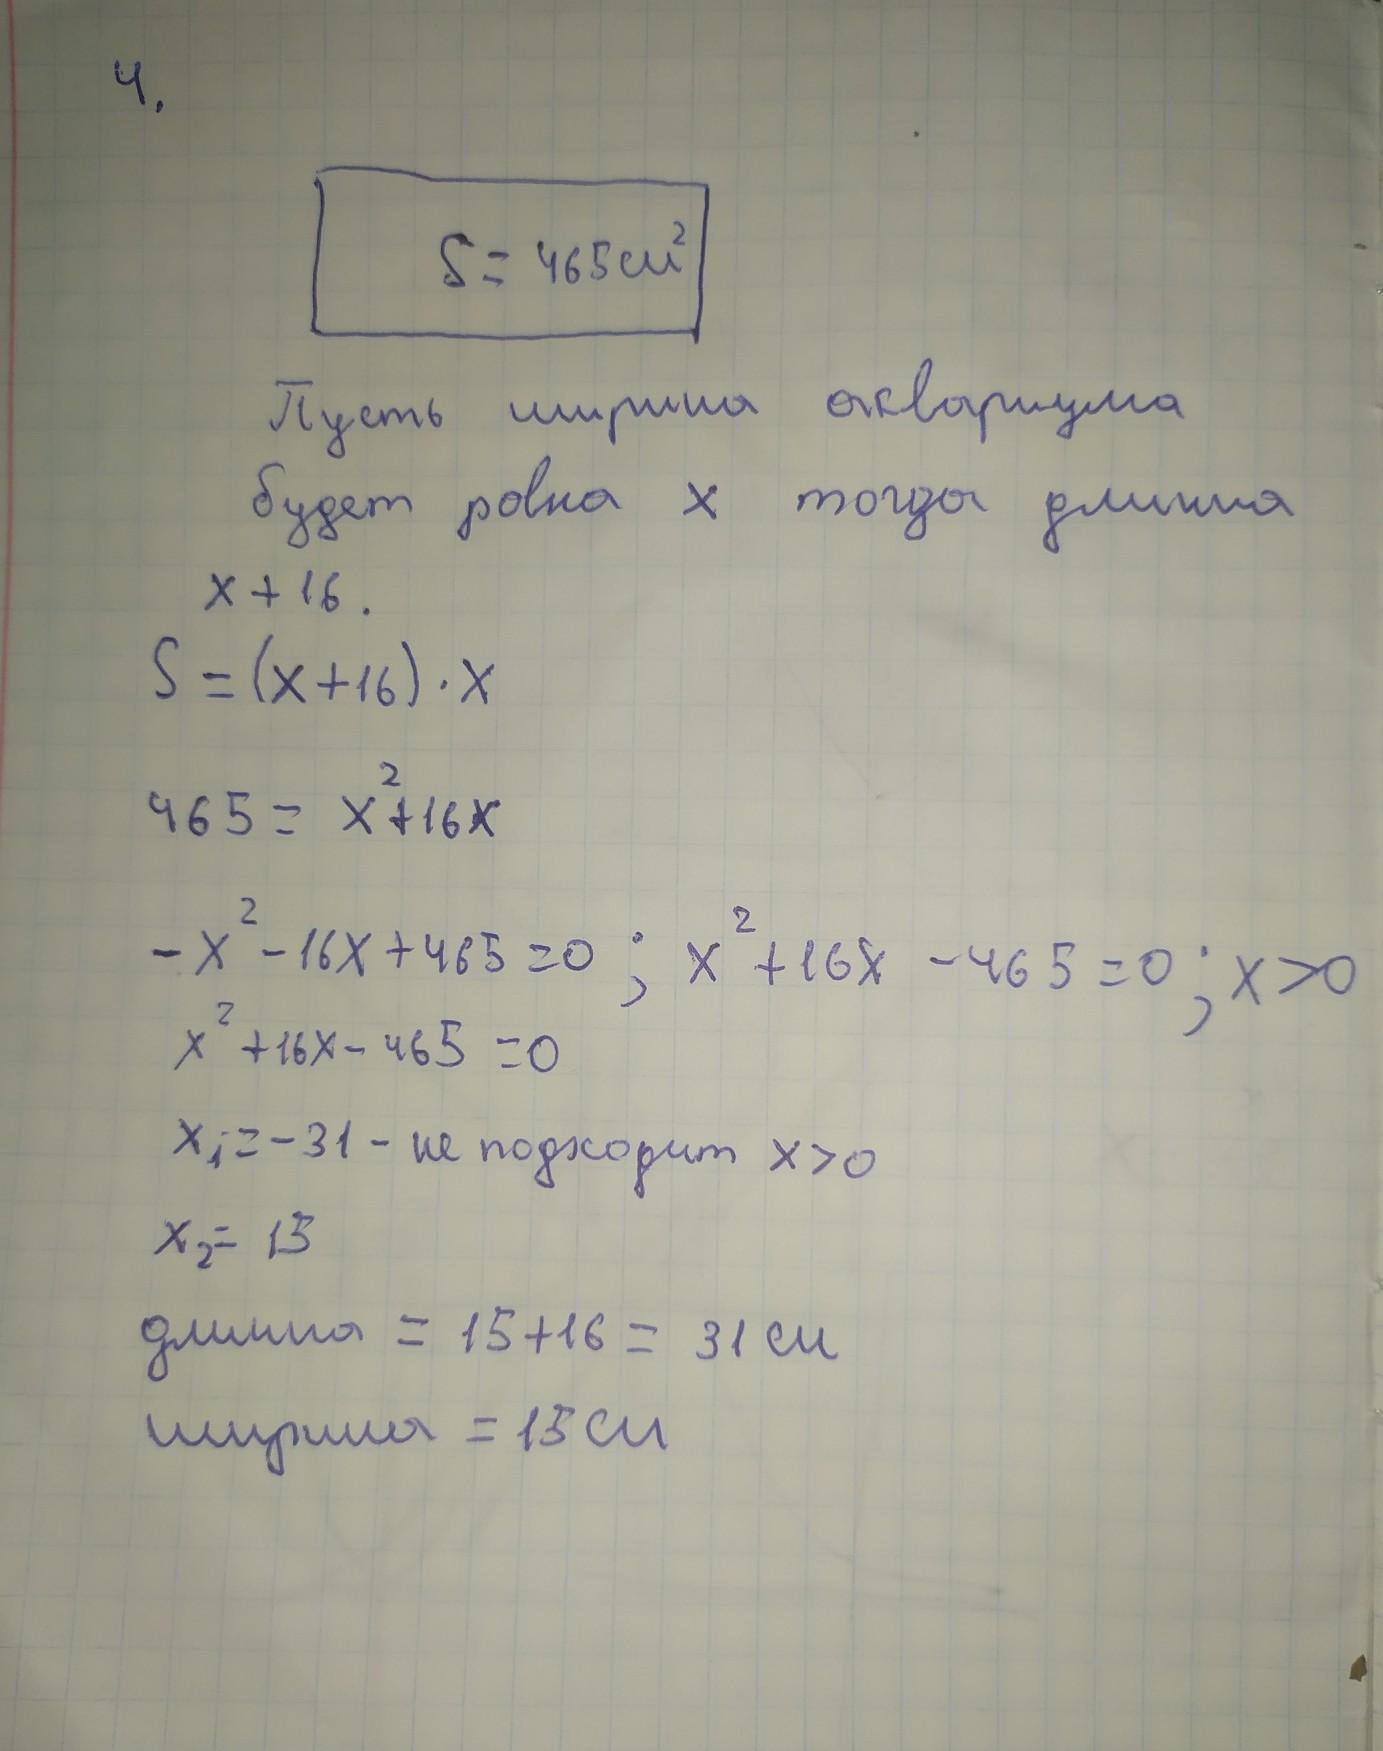 4.
S = 465 см²
Пусть ширина аквариума
будет равна x тогда длинна
x + 16.
S = (x+16) · x
465 = x²+16x
-x² - 16x + 465 = 0 ; x² + 16x - 465 = 0 ; x > 0
x² + 16x - 465 = 0
x₁ = -31 - не подходит x > 0
x₂ = 15
длинна = 15+16 = 31 см
ширина = 15 см